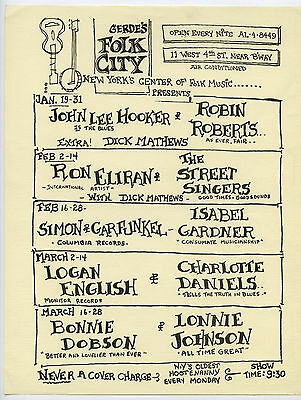 GERDE'S
FOLK
CITY
OPEN EVERY NITE AL-4-8449
11 WEST 4TH ST. NEAR B'WAY
AIR CONDITIONED
NEW YORK'S CENTER OF FOLK MUSIC......
PRESENTS
JAN. 19-31
JOHN LEE HOOKER &
ROBIN
ROBERTS..
IS THE BLUES
AS EVER, FAIR..
EXTRA! DICK MATHEWS
FEB 2-14
RON ELIRAN &
THE
STREET
SINGERS
INTERNATIONAL ARTIST -
- WITH DICK MATHEWS -
GOOD TIMES - GOOD SOUNDS
FEB 16-28-
SIMON & GARFUNKEL -
ISABEL
GARDNER
- COLUMBIA RECORDS -
"CONSUMATE MUSICIANSHIP"
MARCH 2-14
LOGAN
ENGLISH
&
CHARLOTTE
DANIELS..
MONITOR RECORDS
"TELLS THE TRUTH IN BLUES"
MARCH 16-28
BONNIE
DOBSON
&
LONNIE
JOHNSON
"BETTER AND LOVELIER THAN EVER"
"ALL TIME GREAT"
NEVER A COVER CHARGE
N.Y'S OLDEST
HOOTENANNY
EVERY MONDAY
SHOW
TIME: 9:30